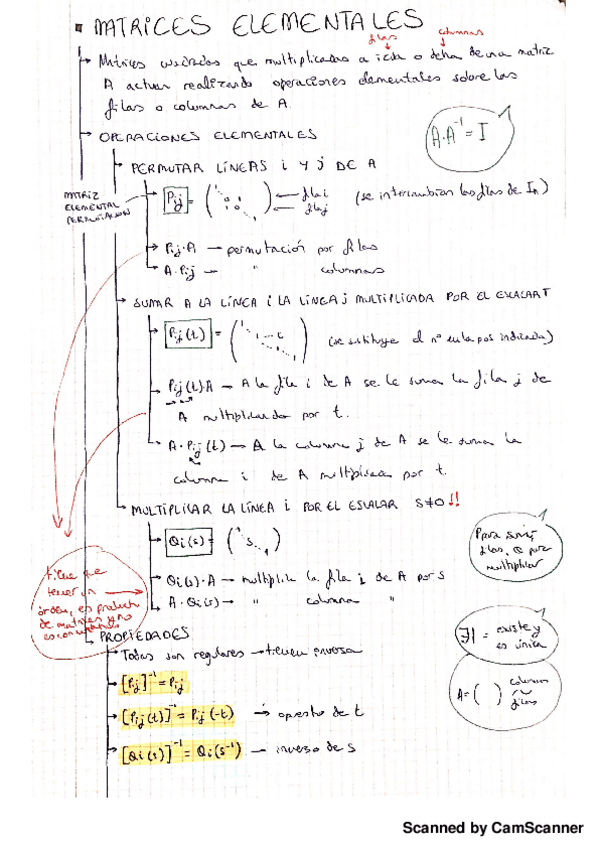 MATRICES ELEMENTALES
filas columnas
Matrices cuadradas que multiplicadas a izda o dcha de una matriz
A actúan realizando operaciones elementales sobre las
filas o columnas de A.
A·A⁻¹ = I
OPERACIONES ELEMENTALES
PERMUTAR LÍNEAS i Y j DE A
MATRIZ
ELEMENTAL
PERMUTACIÓN
Pij = ( ) ← fila i (se intercambian las filas de In)
← fila j
Pij·A → permutación por filas
A·Pij → " columnas
SUMAR A LA LÍNEA i LA LÍNEA j MULTIPLICADA POR EL ESCALAR T
Pij(t) = ( 1 1 -t ) (se sustituye el nº en la pos indicada)
Pij(t)A → A la fila i de A se le suma la fila j de
A multiplicada por t.
A·Pij(t) → A la columna j de A se le suma la
columna i de A multiplicada por t.
MULTIPLICAR LA LÍNEA i POR EL ESCALAR S≠0 !!
Qi(s) = ( 1 s 1 )
Para
filas, o para
multiplicar
Qi(s)·A → multiplica la fila i de A por s
A·Qi(s) → " columna "
tiene que
tener un
orden, es producto
de matrices y no
es conmutativo
PROPIEDADES
∃! = existe y
es única
Todas son regulares → tienen inversa
[Pij]⁻¹ = Pij
A = ( ) columnas
filas
[Pij(t)]⁻¹ = Pij(-t) → opuesto de t
[Qi(s)]⁻¹ = Qi(s⁻¹) → inverso de s
Scanned by CamScanner